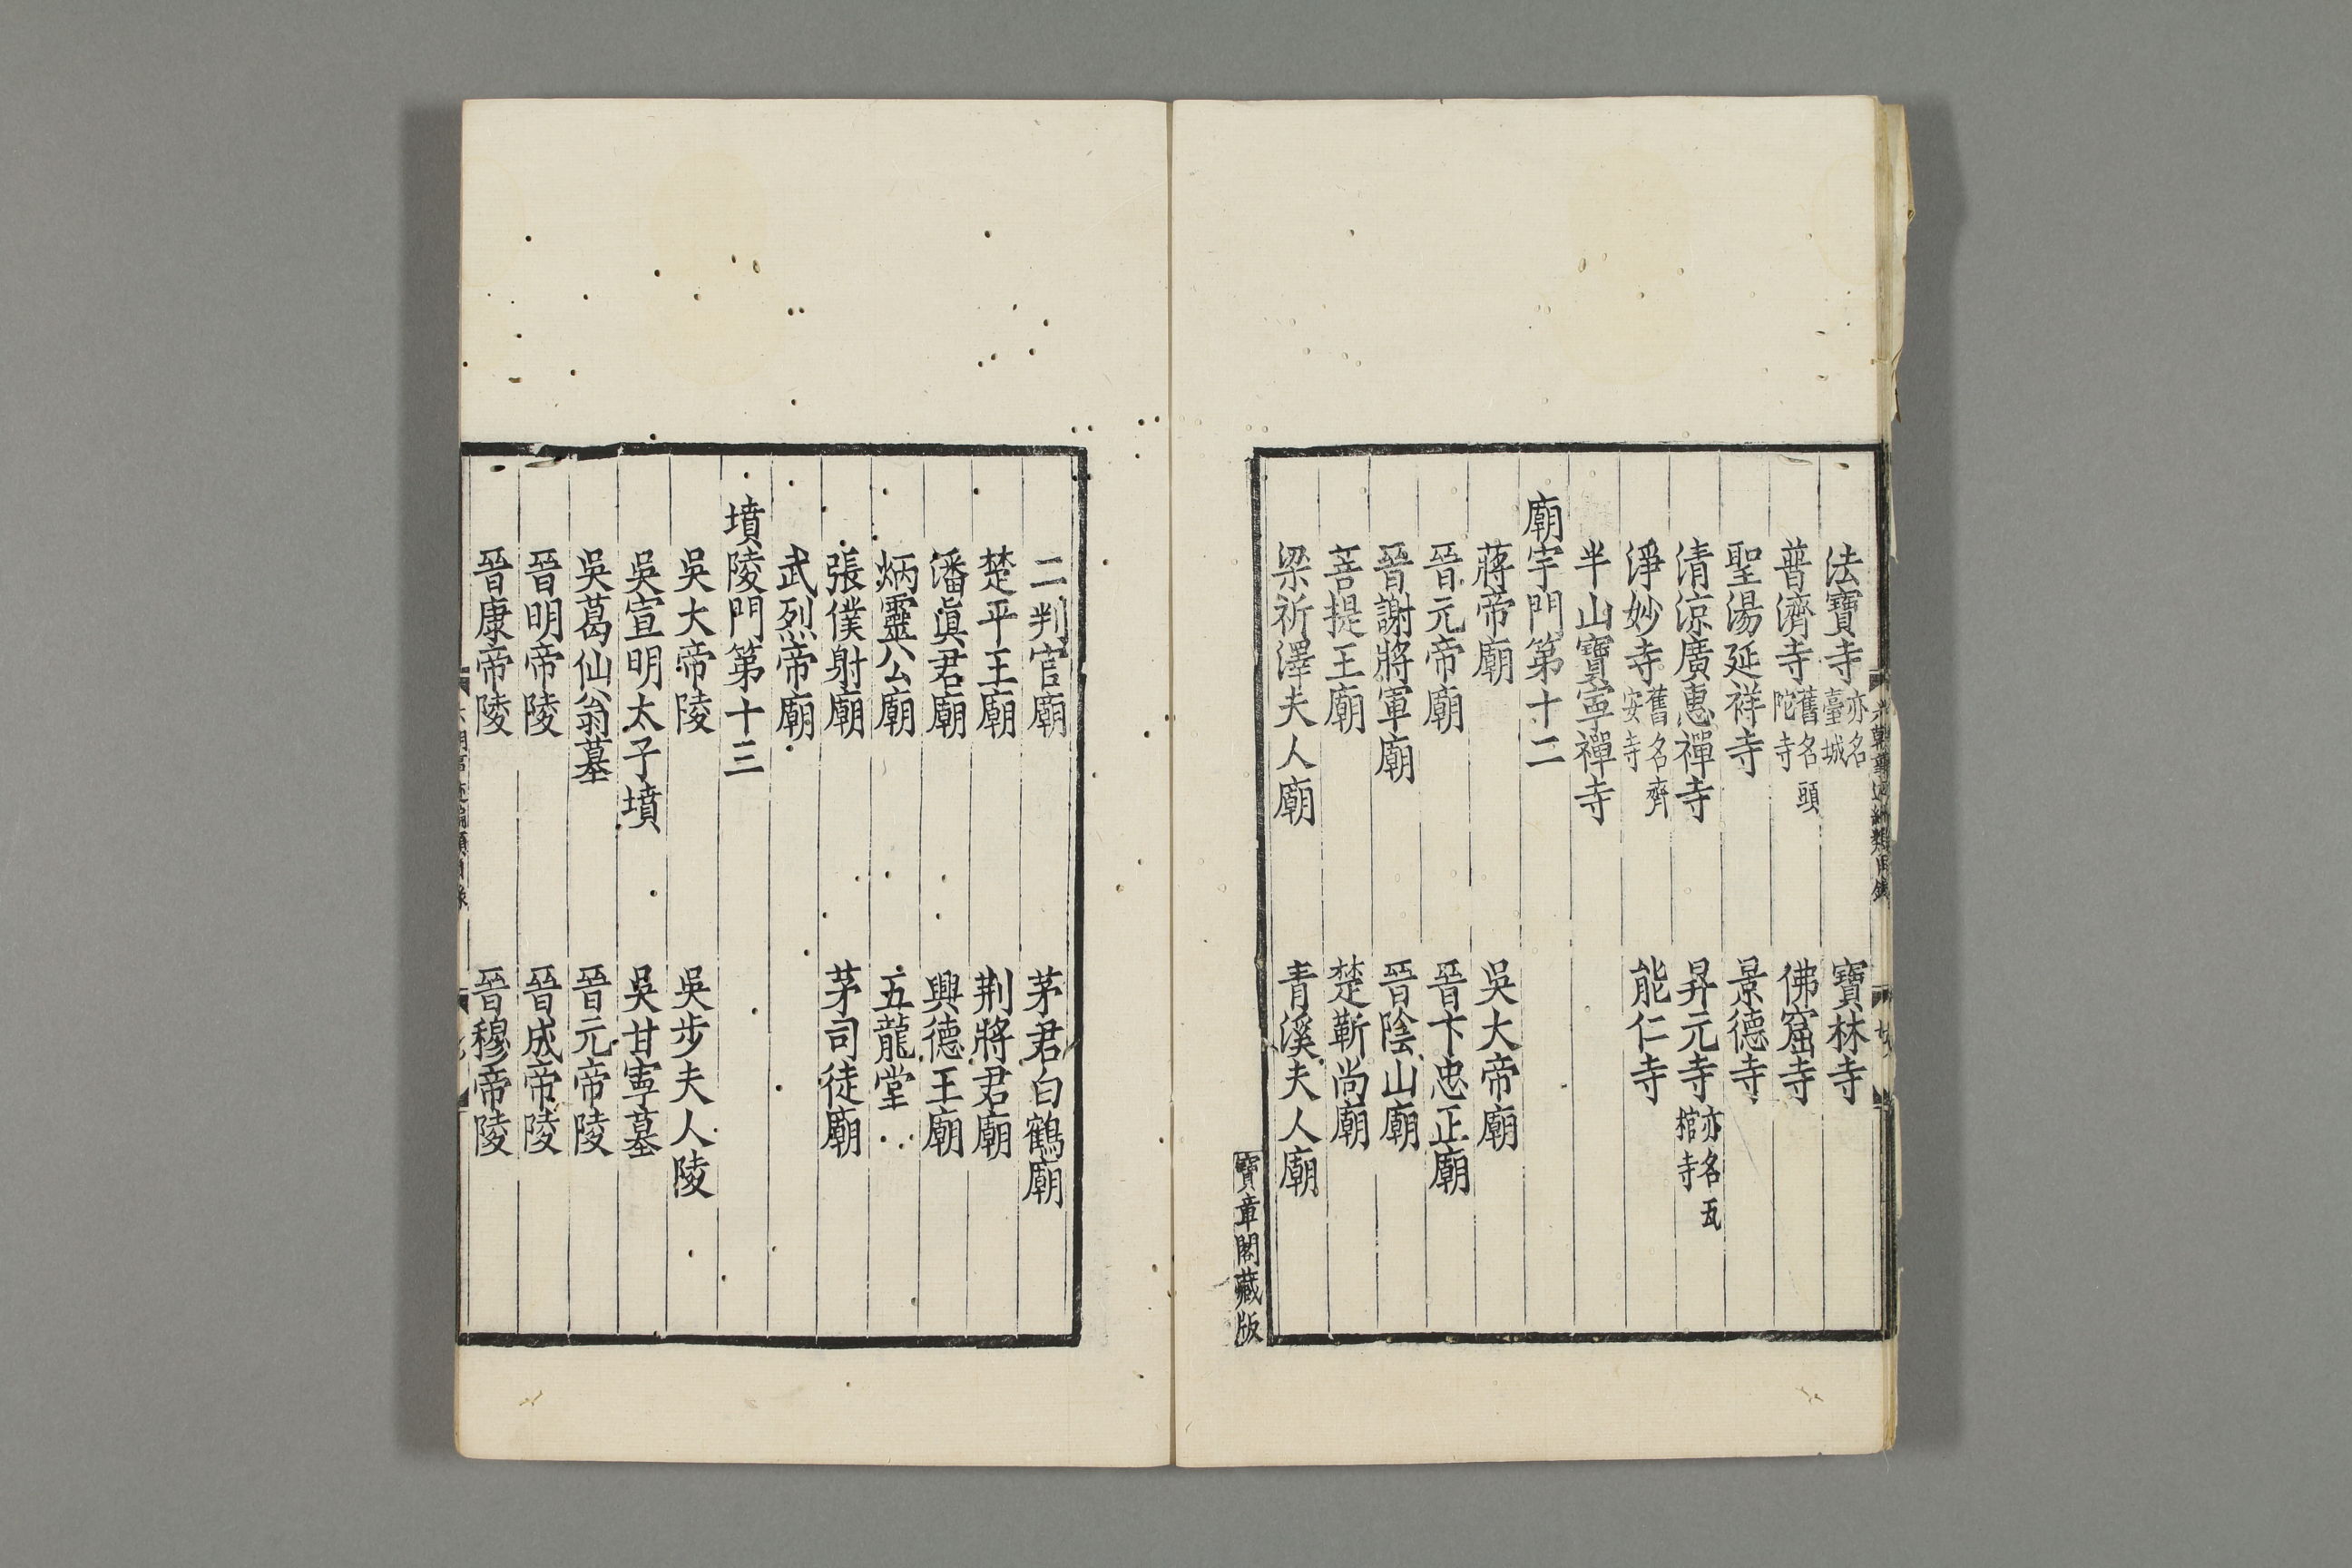 法寶寺亦名臺城　寶林寺
普濟寺舊名頭陀寺　佛窟寺
聖湯延祥寺　景德寺
清涼廣惠禪寺　昇元寺亦名瓦棺寺
淨妙寺舊名齊安寺　能仁寺
半山寶寧禪寺
廟宇門第十二
蔣帝廟　吳大帝廟
晉元帝廟　晉卞忠正廟
晉謝將軍廟　晉陰山廟
菩提王廟　楚靳尚廟
梁祈澤夫人廟　青溪夫人廟
寶章閣藏版
二判官廟　茅君白鶴廟
楚平王廟　荆將君廟
潘眞君廟　興德王廟
炳靈公廟　五龍堂
張僕射廟　茅司徒廟
武烈帝廟
墳陵門第十三
吳大帝陵　吳步夫人陵
吳宣明太子墳　吳甘寧墓
吳葛仙翁墓　晉元帝陵
晉明帝陵　晉成帝陵
晉康帝陵　晉穆帝陵